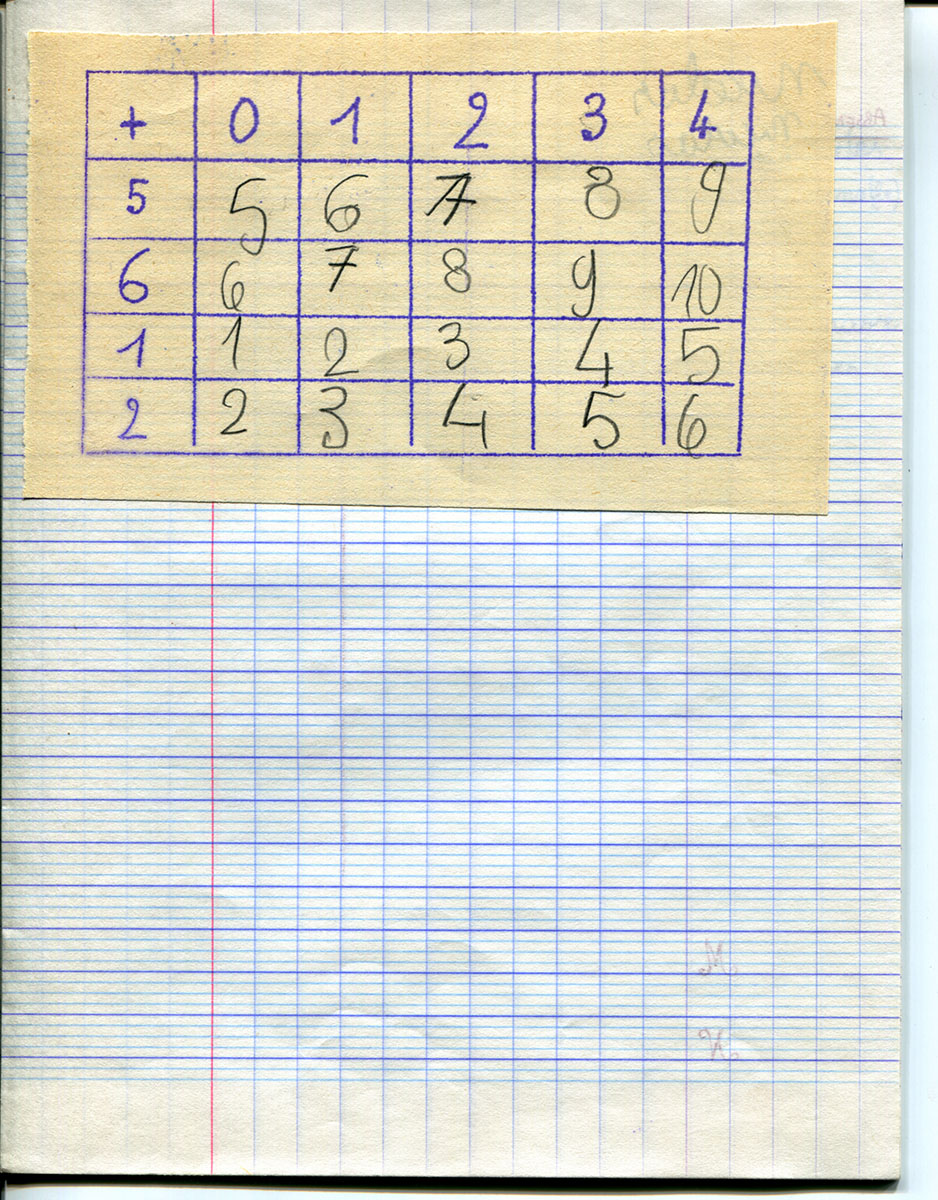 + 0 1 2 3 4
5 5 6 7 8 9
6 6 7 8 9 10
1 1 2 3 4 5
2 2 3 4 5 6